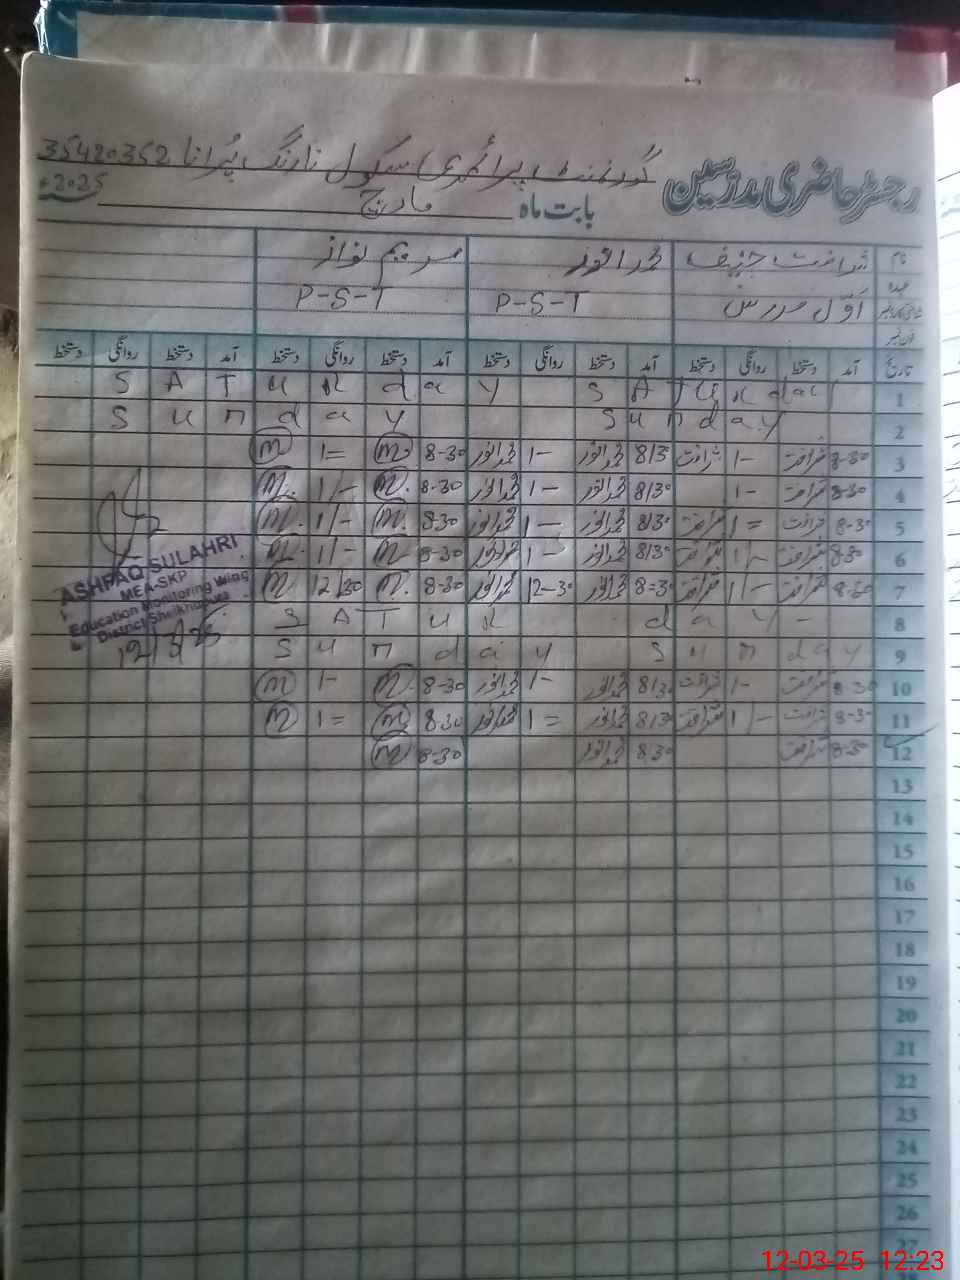 گورنمنٹ پرائمری سکول نارنگ پُرانا 35420352
رجسٹر حاضری مدرسین بابت ماہ مارچ 2025ء
نام شرافت حنیف محمد انور مریم نواز
عہدہ اوّل مدرس P-S-T P-S-T
تاریخ آمد دستخط روانگی دستخط آمد دستخط روانگی دستخط آمد دستخط روانگی دستخط آمد دستخط روانگی دستخط
1 SATURday SATURday
2 Sunday Sunday
3 8-30 شرافت 1- شرافت 8/30 محمد انور 1- محمد انور 8-30 M 1= M
4 8-30 شرافت 1- 8/30 محمد انور 1- محمد انور 8-30 M. 1/- M.
5 8-30 شرافت 1= شرافت 8/30 محمد انور 1- محمد انور 8-30 M. 1/- M.
6 8-30 شرافت 1/- شرافت 8/30 محمد انور 1- محمد انور 8-30 M 1/- M.
7 8-30 شرافت 1/- شرافت 8=30 محمد انور 12-30 محمد انور 8-30 M. 12/30 M.
8 SATURday -
9 Sunday Sunday
10 8-30 شرافت 1- شرافت 8/30 محمد انور 1- محمد انور 8-30 M. 1- M
11 8-30 شرافت 1/- شرافت 8/30 محمد انور 1= محمد انور 8-30 M 1= M
12 8-30 شرافت 8/30 محمد انور 8-30 M
13
14
15
16
17
18
19
20
21
22
23
24
25
26
27
ASHFAQ SULAHRI
MEA-SKP
Education Monitoring Wing
District Sheikhupura
12/3/25
12-03-25 12:23